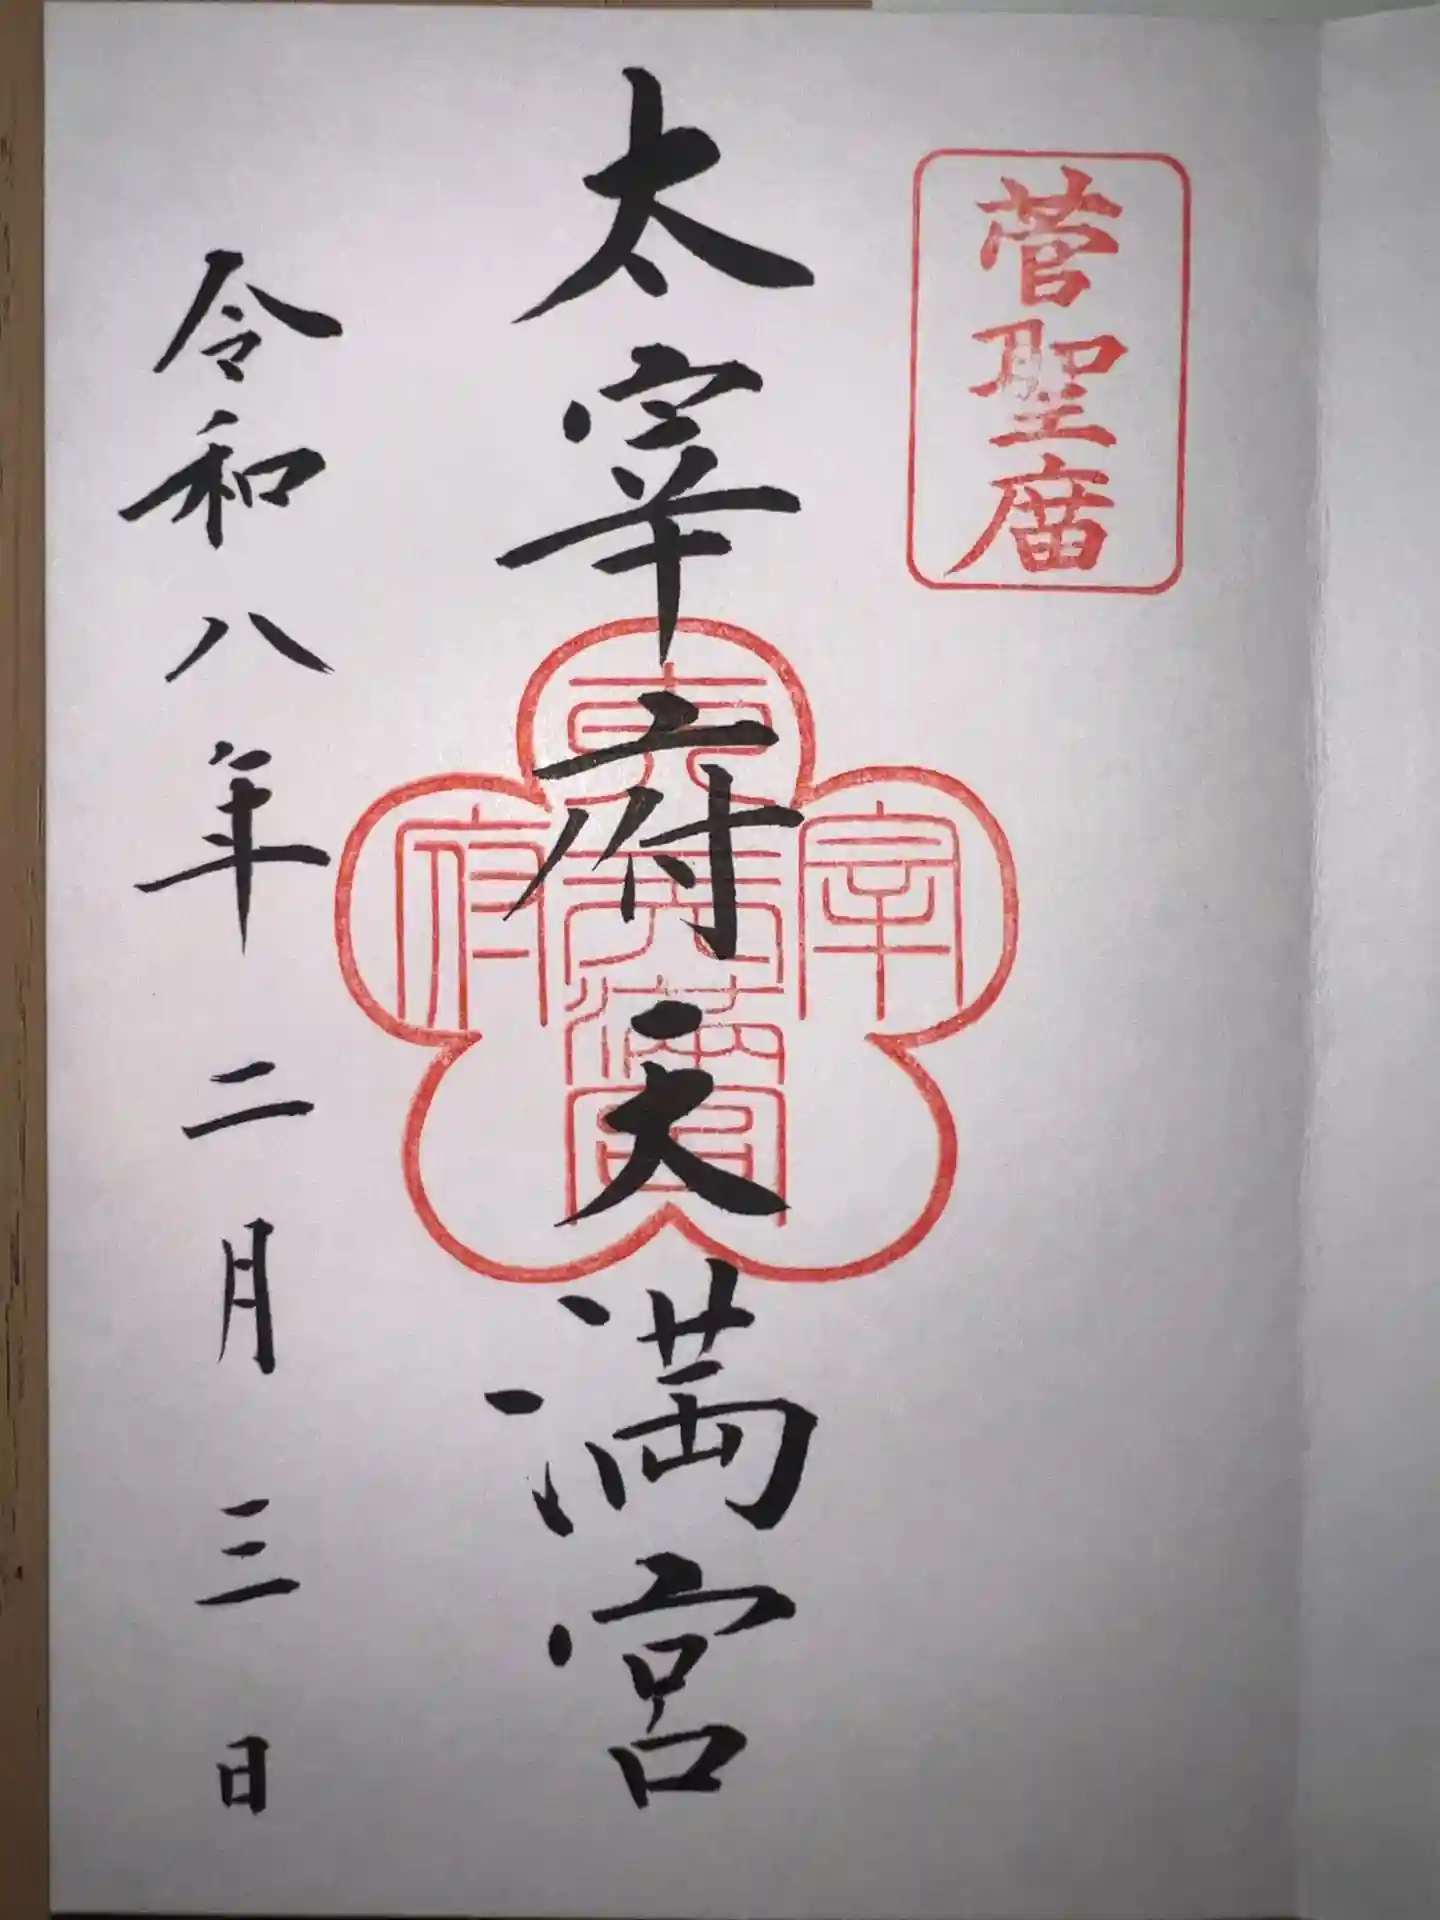 菅聖庿
太宰府天満宮
宰
府
天満宮
令和八年二月三日